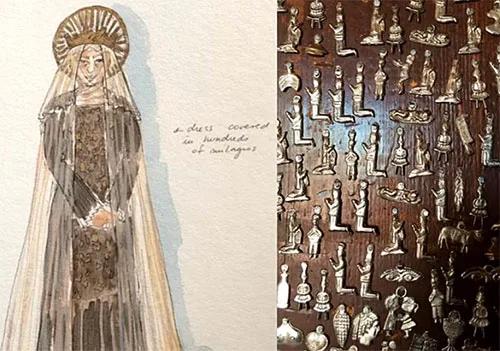 a dress covered
in hundreds
of milagros